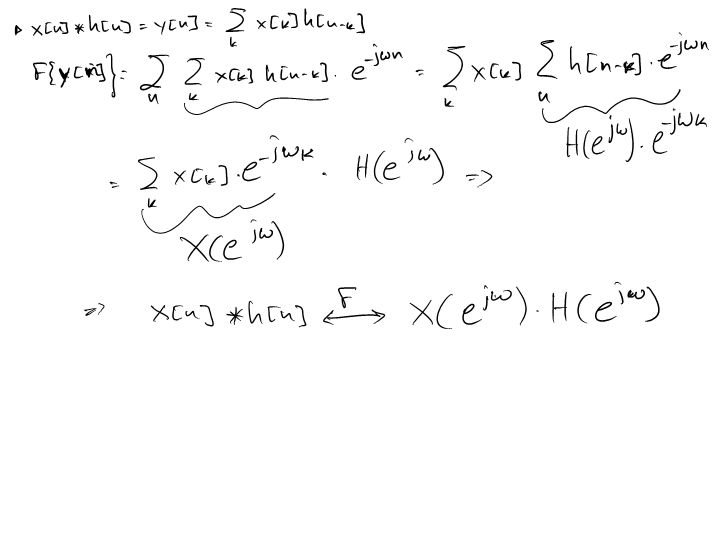 ▸ x[n] * h[n] = y[n] = Σ_k x[k] h[n-k]
F{y[n]} = Σ_n Σ_k x[k] h[n-k] · e^{-jωn} = Σ_k x[k] Σ_n h[n-k] · e^{-jωn}
H(e^{jω}) · e^{-jωk}
= Σ_k x[k] · e^{-jωk} · H(e^{jω}) =>
X(e^{jω})
=> x[n] * h[n] ⟷^F X(e^{jω}) · H(e^{jω})